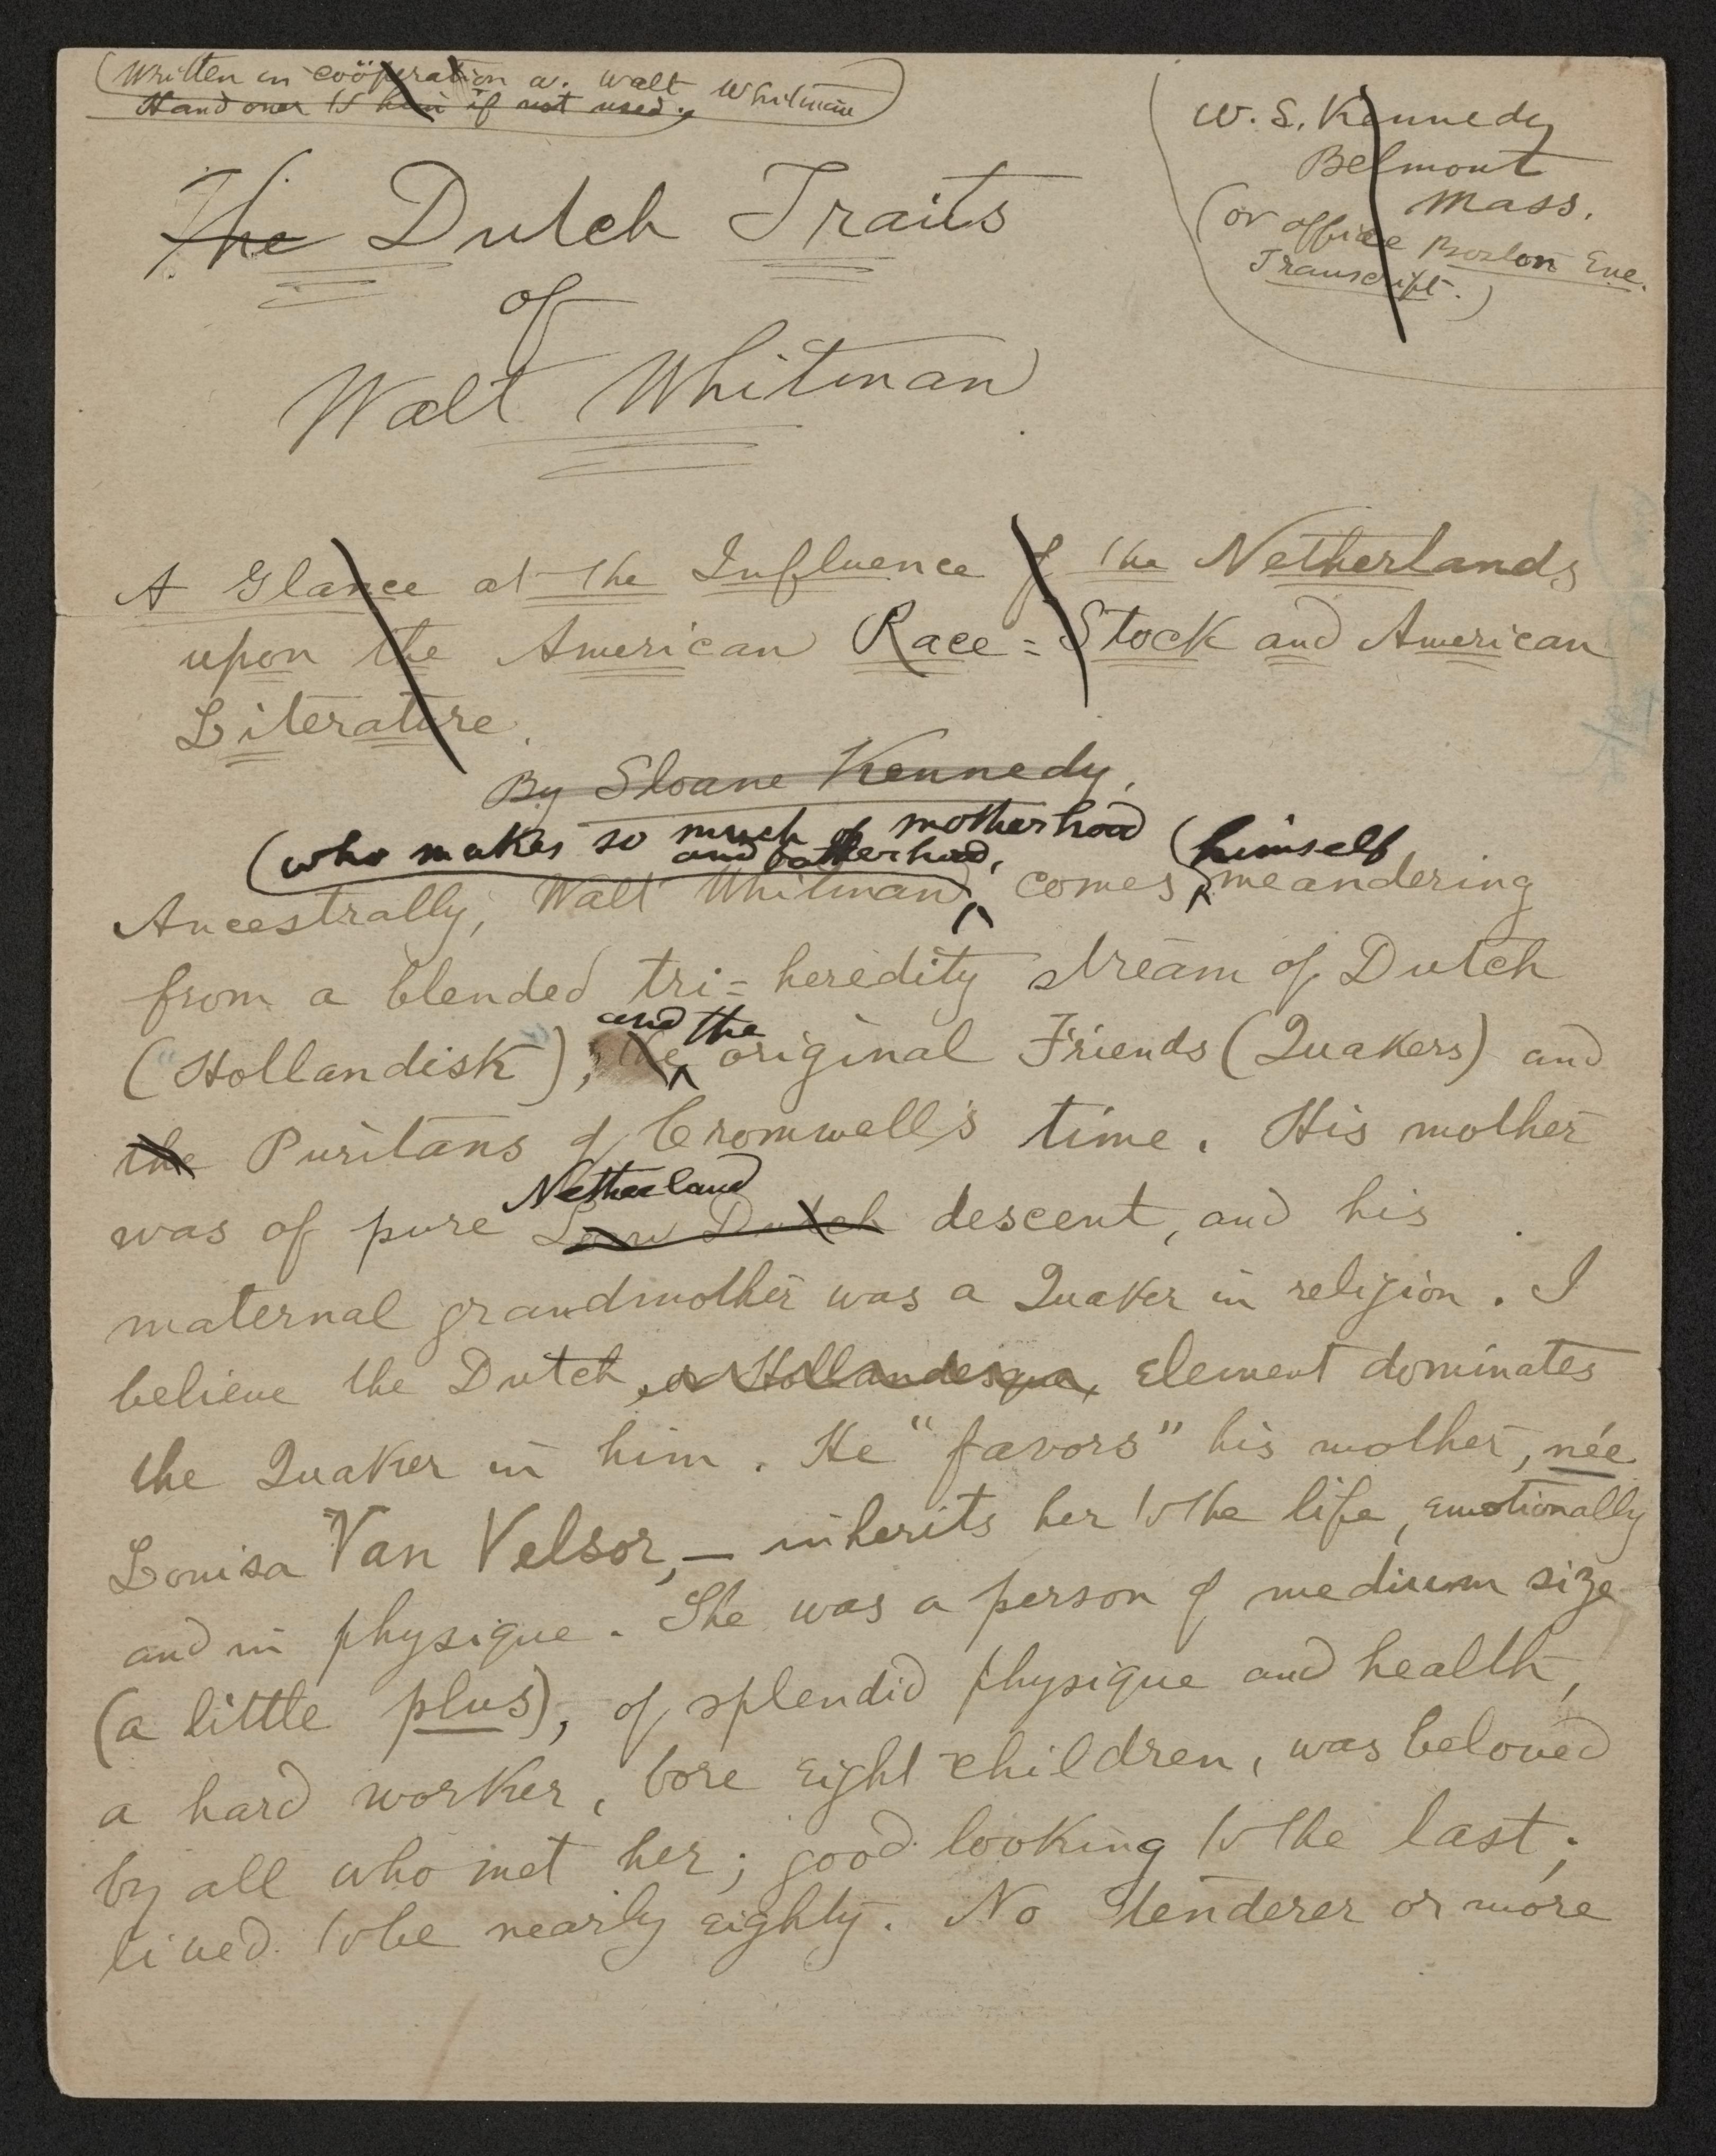 (Written in coöperation w. Walt Whitman
Hand over to him if not used.)
W. S. Kennedy
Belmont
Mass.
(or office Boston Eve.
Transcript.)
The Dutch Traits
of
Walt Whitman
A Glance at the Influence of the Netherlands
upon the American Race=Stock and American
Literature.
By Sloane Kennedy,
(who makes so much of motherhood
and fatherhood, (himself
Ancestrally, Walt Whitman, comes meandering
from a blended tri=heredity stream of Dutch
and the
("Hollandisk"), the original Friends (Quakers) and
the Puritans of Cromwell's time. His mother
Netherland
was of pure Low Dutch descent, and his
maternal grandmother was a Quaker in religion. I
believe the Dutch, or Hollandesque, element dominates
the Quaker in him. He "favors" his mother, née
Louisa Van Velsor, — inherits her to the life, emotionally
and in physique. She was a person of medium size
(a little plus), of splendid physique and health,
a hard worker, bore eight children, was beloved
by all who met her; good looking to the last;
lived to be nearly eighty. No tenderer or more